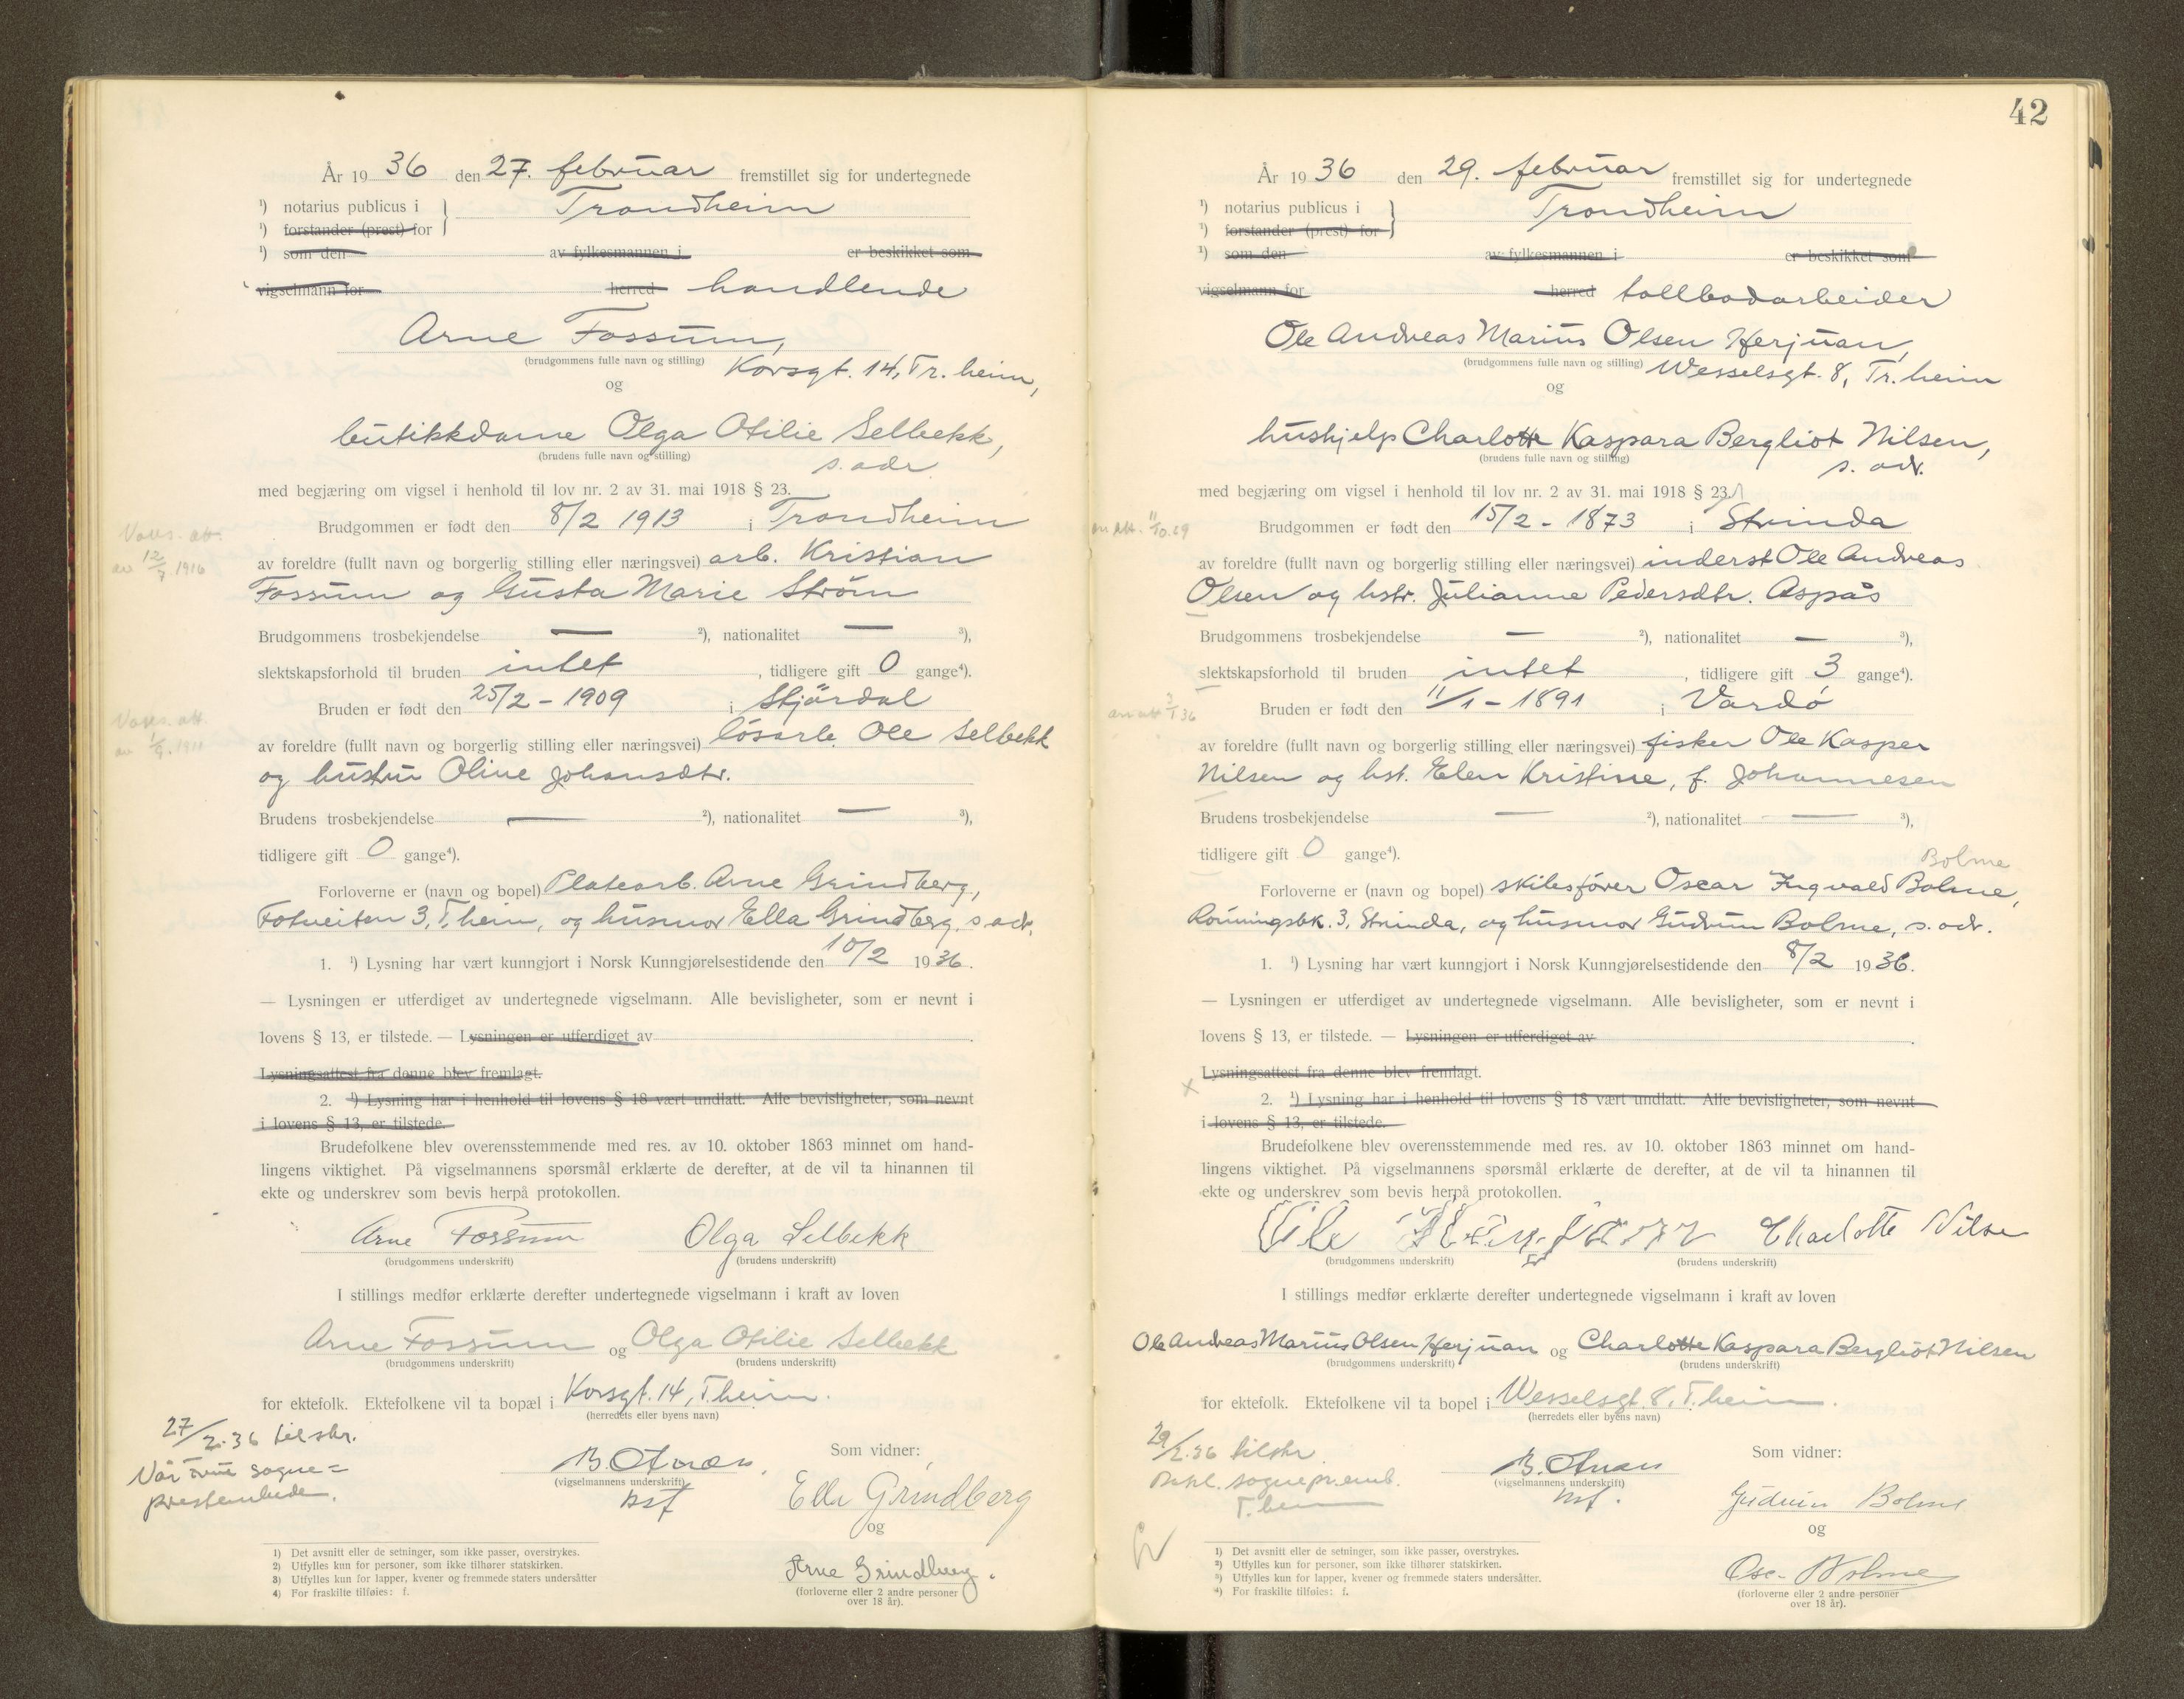 År 1936 den 27. februar fremstillet sig for undertegnede
¹) notarius publicus i } Trondheim
¹) forstander (prest) for
¹) som den av fylkesmannen i er beskikket som
vigselmann for herred handlende
Arne Fossum,
(brudgommens fulle navn og stilling) Korsgt. 14, Tr.heim,
og
butikkdame Olga Otilie Selbekk,
(brudens fulle navn og stilling) s. adr
med begjæring om vigsel i henhold til lov nr. 2 av 31. mai 1918 § 23.
Brudgommen er født den 8/2 1913 i Trondheim
av foreldre (fullt navn og borgerlig stilling eller næringsvei) arb. Kristian
Fossum og Gusta Marie Strøm
Brudgommens trosbekjendelse — ²), nationalitet — ³),
slektskapsforhold til bruden intet, tidligere gift 0 gange⁴).
Bruden er født den 25/2 - 1909 i Stjördal
av foreldre (fullt navn og borgerlig stilling eller næringsvei) lösarb. Ole Selbekk
og hustru Oline Johansdtr.
Brudens trosbekjendelse — ²), nationalitet — ³),
tidligere gift 0 gange⁴).
Forloverne er (navn og bopel) Platearb. Arne Grindberg,
3, T.heim, og husmor Ella Grindberg, s. adr.
1. ¹) Lysning har vært kunngjort i Norsk Kunngjørelsestidende den 10/2 1936.
— Lysningen er utferdiget av undertegnede vigselmann. Alle bevisligheter, som er nevnt i
lovens § 13, er tilstede. — Lysningen er utferdiget av
Lysningsattest fra denne blev fremlagt.
2. ¹) Lysning har i henhold til lovens § 18 vært undlatt. Alle bevisligheter, som nevnt
i lovens § 13, er tilstede.
Brudefolkene blev overensstemmende med res. av 10. oktober 1863 minnet om hand-
lingens viktighet. På vigselmannens spørsmål erklærte de derefter, at de vil ta hinannen til
ekte og underskrev som bevis herpå protokollen.
Arne Fossum Olga Selbekk
(brudgommens underskrift) (brudens underskrift)
I stillings medfør erklærte derefter undertegnede vigselmann i kraft av loven
Arne Fossum og Olga Otilie Selbekk
(brudgommens underskrift) (brudens underskrift)
for ektefolk. Ektefolkene vil ta bopæl i Korsgt. 14, T.heim.
(herredets eller byens navn)
27/2.36 tilskr.
Vår frue sogne=
prestembede.
(vigselmannens underskrift)
Som vidner:
Ella Grindberg
og
Arne Grindberg.
(forloverne eller 2 andre personer
over 18 år).
1) Det avsnitt eller de setninger, som ikke passer, overstrykes.
2) Utfylles kun for personer, som ikke tilhører statskirken.
3) Utfylles kun for lapper, kvener og fremmede staters undersåtter
4) For fraskilte tilføies: f.
42
År 1936 den 29. februar fremstillet sig for undertegnede
¹) notarius publicus i } Trondheim
¹) forstander (prest) for
¹) som den av fylkesmannen i er beskikket som
vigselmann for herred tollbodarbeider
Ole Andreas Marius Olsen Herjuan,
(brudgommens fulle navn og stilling) Wesselsgt. 8, Tr.heim
og
hushjelp Charlotte Kaspara Bergliot Nilsen,
(brudens fulle navn og stilling) s. adr.
med begjæring om vigsel i henhold til lov nr. 2 av 31. mai 1918 § 23.
Brudgommen er født den 15/2 - 1873 i Strinda
av foreldre (fullt navn og borgerlig stilling eller næringsvei) inderst Ole Andreas
Olsen og hstr. Julianne Pedersdtr. Aspås
Brudgommens trosbekjendelse — ²), nationalitet — ³),
slektskapsforhold til bruden intet, tidligere gift 3 gange⁴).
Bruden er født den 11/1 - 1891 i Vardö
av foreldre (fullt navn og borgerlig stilling eller næringsvei) fisker Ole Kasper
Nilsen og hst. Elen Kristine, f. Johannesen
Brudens trosbekjendelse — ²), nationalitet — ³),
tidligere gift 0 gange⁴).
Bolme
Forloverne er (navn og bopel) skibsförer Oscar Ingvald Bolme,
3, Strinda, og husmor Gudrun Bolme, s. adr.
1. ¹) Lysning har vært kunngjort i Norsk Kunngjørelsestidende den 8/2 1936.
— Lysningen er utferdiget av undertegnede vigselmann. Alle bevisligheter, som er nevnt i
lovens § 13, er tilstede. — Lysningen er utferdiget av
Lysningsattest fra denne blev fremlagt.
2. ¹) Lysning har i henhold til lovens § 18 vært undlatt. Alle bevisligheter, som nevnt
i lovens § 13, er tilstede.
Brudefolkene blev overensstemmende med res. av 10. oktober 1863 minnet om hand-
lingens viktighet. På vigselmannens spørsmål erklærte de derefter, at de vil ta hinannen til
ekte og underskrev som bevis herpå protokollen.
Ole Herjuan Charlotte Nilsen
(brudgommens underskrift) (brudens underskrift)
I stillings medfør erklærte derefter undertegnede vigselmann i kraft av loven
Ole Andreas Marius Olsen Herjuan og Charlotte Kaspara Bergliot Nilsen
(brudgommens underskrift) (brudens underskrift)
for ektefolk. Ektefolkene vil ta bopel i Wesselsgt. 8, T.heim.
(herredets eller byens navn)
29/2.36 tilskr.
Bakl. sognepr.emb.
T.heim
(vigselmannens underskrift)
Som vidner:
Gudrun Bolme
og
Osc. Bolme
(forloverne eller 2 andre personer
over 18 år).
1) Det avsnitt eller de setninger, som ikke passer, overstrykes.
2) Utfylles kun for personer, som ikke tilhører statskirken.
3) Utfylles kun for lapper, kvener og fremmede staters undersåtter.
4) For fraskilte tilføies: f.